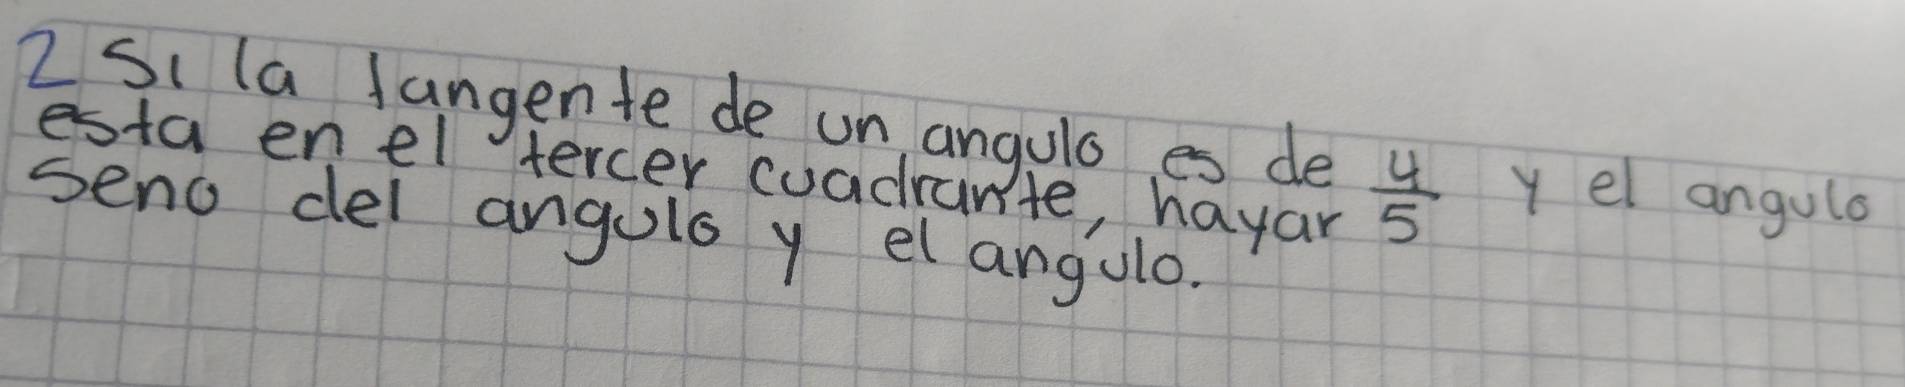 2 Si la tangente de un angulo es de 4/5 y el angulo
esta en el tercer cuadrante, hayar
seno del angulo y el angulo.